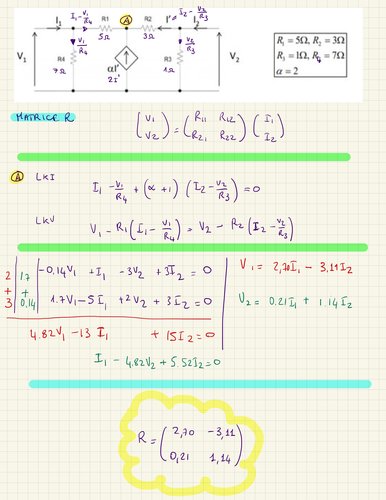 I₁ I₁-V₁/R₄ R1 A R2 I'=I₂-V₂/R₃ I₂
V₁/R₄ 5Ω 3Ω V₂/R₃
V₁ R4 αI' R3 V₂
7Ω 2I' 1Ω
R₁ = 5Ω, R₂ = 3Ω
R₃ = 1Ω, R₄ = 7Ω
α = 2
MATRICE R (V₁ V₂) = (R₁₁ R₁₂ R₂₁ R₂₂) (I₁ I₂)
A LKI I₁ - V₁/R₄ + (α + 1) (I₂ - V₂/R₃) = 0
LKV V₁ - R₁ (I₁ - V₁/R₄) = V₂ - R₂ (I₂ - V₂/R₃)
2 1.7 -0.14V₁ + I₁ - 3V₂ + 3I₂ = 0
+ +
3 0.14 1.7V₁ - 5I₁ + 2V₂ + 3I₂ = 0
4.82V₁ - 13 I₁ + 15I₂ = 0
I₁ - 4.82V₂ + 5.52I₂ = 0
V₁ = 2,70I₁ - 3,11I₂
V₂ = 0.21I₁ + 1.14I₂
R = (2,70 -3,11 0,21 1,14)